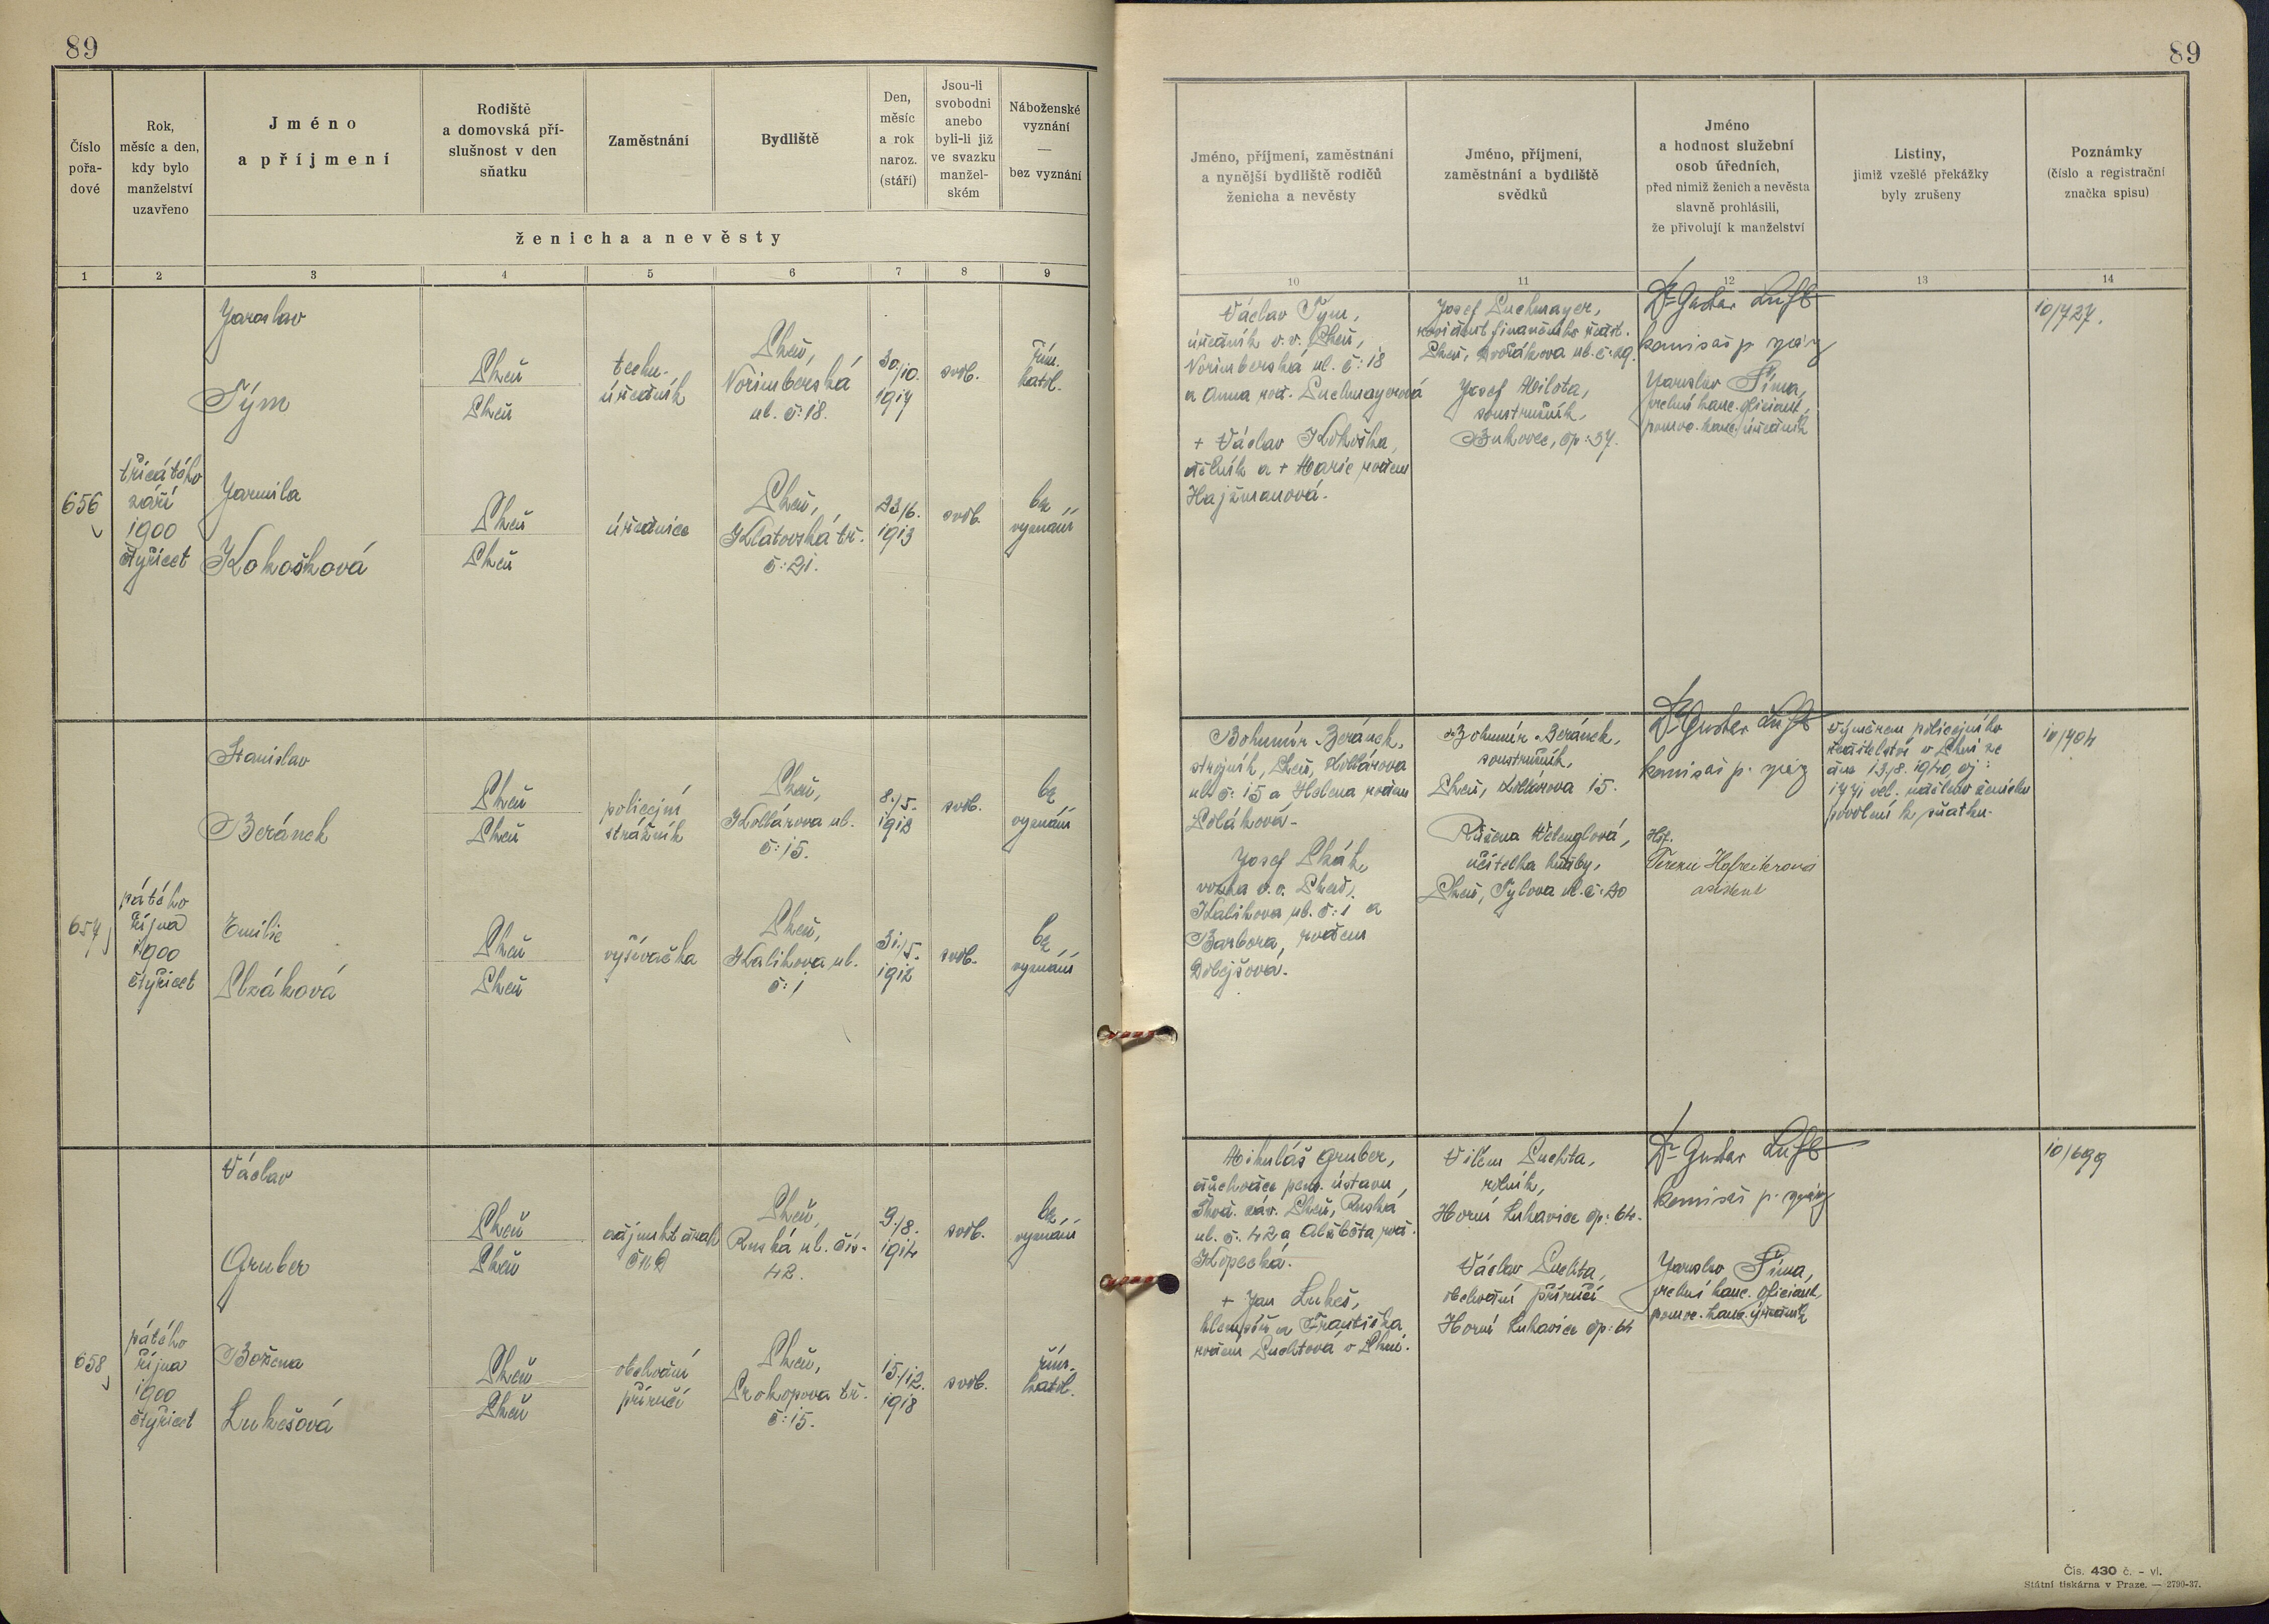 89
89
Číslo pořadové
Rok, měsíc a den, kdy bylo manželství uzavřeno
Jméno a příjmení
Rodiště a domovská příslušnost v den sňatku
Zaměstnání
Bydliště
Den, měsíc a rok naroz. (stáří)
Jsou-li svobodni anebo byli-li již ve svazku manželském
Náboženské vyznání — bez vyznání
ženicha a nevěsty
Jméno, příjmení, zaměstnání a nynější bydliště rodičů ženicha a nevěsty
Jméno, příjmení, zaměstnání a bydliště svědků
Jméno a hodnost služební osob úředních, před nimiž ženich a nevěsta slavně prohlásili, že přivolují k manželství
Listiny, jimiž vzešlé překážky byly zrušeny
Poznámky (číslo a registrační značka spisu)
1 2 3 4 5 6 7 8 9 10 11 12 13 14
656
třicátého
září
1900
čtyřicet
Jaroslav
Tým
Plzeň
Plzeň
techn.
úředník
Plzeň,
Norimberská
ul. č: 18.
30./10.
1917
svob.
řím.
katol.
Jarmila
Kokošková
Plzeň
Plzeň
úřednice
Plzeň,
Klatovská tř.
č: 21.
23/6.
1913
svob.
bez
vyznání
Václav Tým,
úředník v.v. Plzeň,
Norimberská ul. č: 18
a Anna roz. Suchmayerová
+ Václav Kokoška,
dělník a + Marie rozen
Hajžmanová.
Josef Suchmayer,
revident finančního
Plzeň, Dvořákova ul. č: 29.
Josef Milota,
soustružník,
Bukovec, čp: 37.
Dr Gustav Luft
komisař p. správy
Jaroslav Šíma,
kanc. oficiant,
pomoc. kanc. úředník
10/727.
657
pátého
října
1900
čtyřicet
Stanislav
Beránek
Plzeň
Plzeň
policejní
strážník
Plzeň,
Kollárova ul.
č: 15.
8./5.
1912
svob.
bez
vyznání
Emilie
Plzáková
Plzeň
Plzeň
vyšívačka
Plzeň,
Kalikova ul.
č: 1
31./5.
1912
svob.
bez
vyznání
Bohumír Beránek,
strojník, Plzeň, Kollárova
ul. č: 15 a Helena rozen
Poláková.
Josef Plzák,
v.v. Plzeň,
Kalikova ul. č: 1 a
Barbora, rozen
Dobejšová.
Bohumír Beránek,
soustružník,
Plzeň, Kollárova 15.
Růžena
učitelka hudby,
Plzeň, Tylova ul. č: 20
Dr Gustav Luft
komisař p. správy
asistent
Výměrem policejního
ředitelství v Plzni ze
dne 13./8. 1940, čj:
1771 uděleno ženichu
povolení k sňatku.
10/704
658
pátého
října
1900
čtyřicet
Václav
Gruber
Plzeň
Plzeň
ČMD
Plzeň,
Ruská ul. čís.
42.
9./8.
1914
svob.
bez
vyznání
Božena
Lukešová
Plzeň
Plzeň
obchodní
příručí
Plzeň,
Prokopova tř.
č: 15.
15./12.
1918
svob.
řím.
katol.
Mikuláš Gruber,
důchodce pens. ústavu,
Škod. záv. Plzeň, Ruská
ul. č. 42 a Alžběta roz.
Kopecká.
+ Jan Lukeš,
klempíř a Františka
rozen Suchtová v Plzni.
Vilém Suchta,
rolník,
Horní Lukavice čp: 64.
Václav Suchta,
obchodní příručí
Horní Lukavice čp: 64
Dr Gustav Luft
komisař p. správy
Jaroslav Šíma,
kanc. oficiant,
pomoc. kanc. úředník
10/699
Čís. 430 č. - vl.
Státní tiskárna v Praze. — 2790-37.